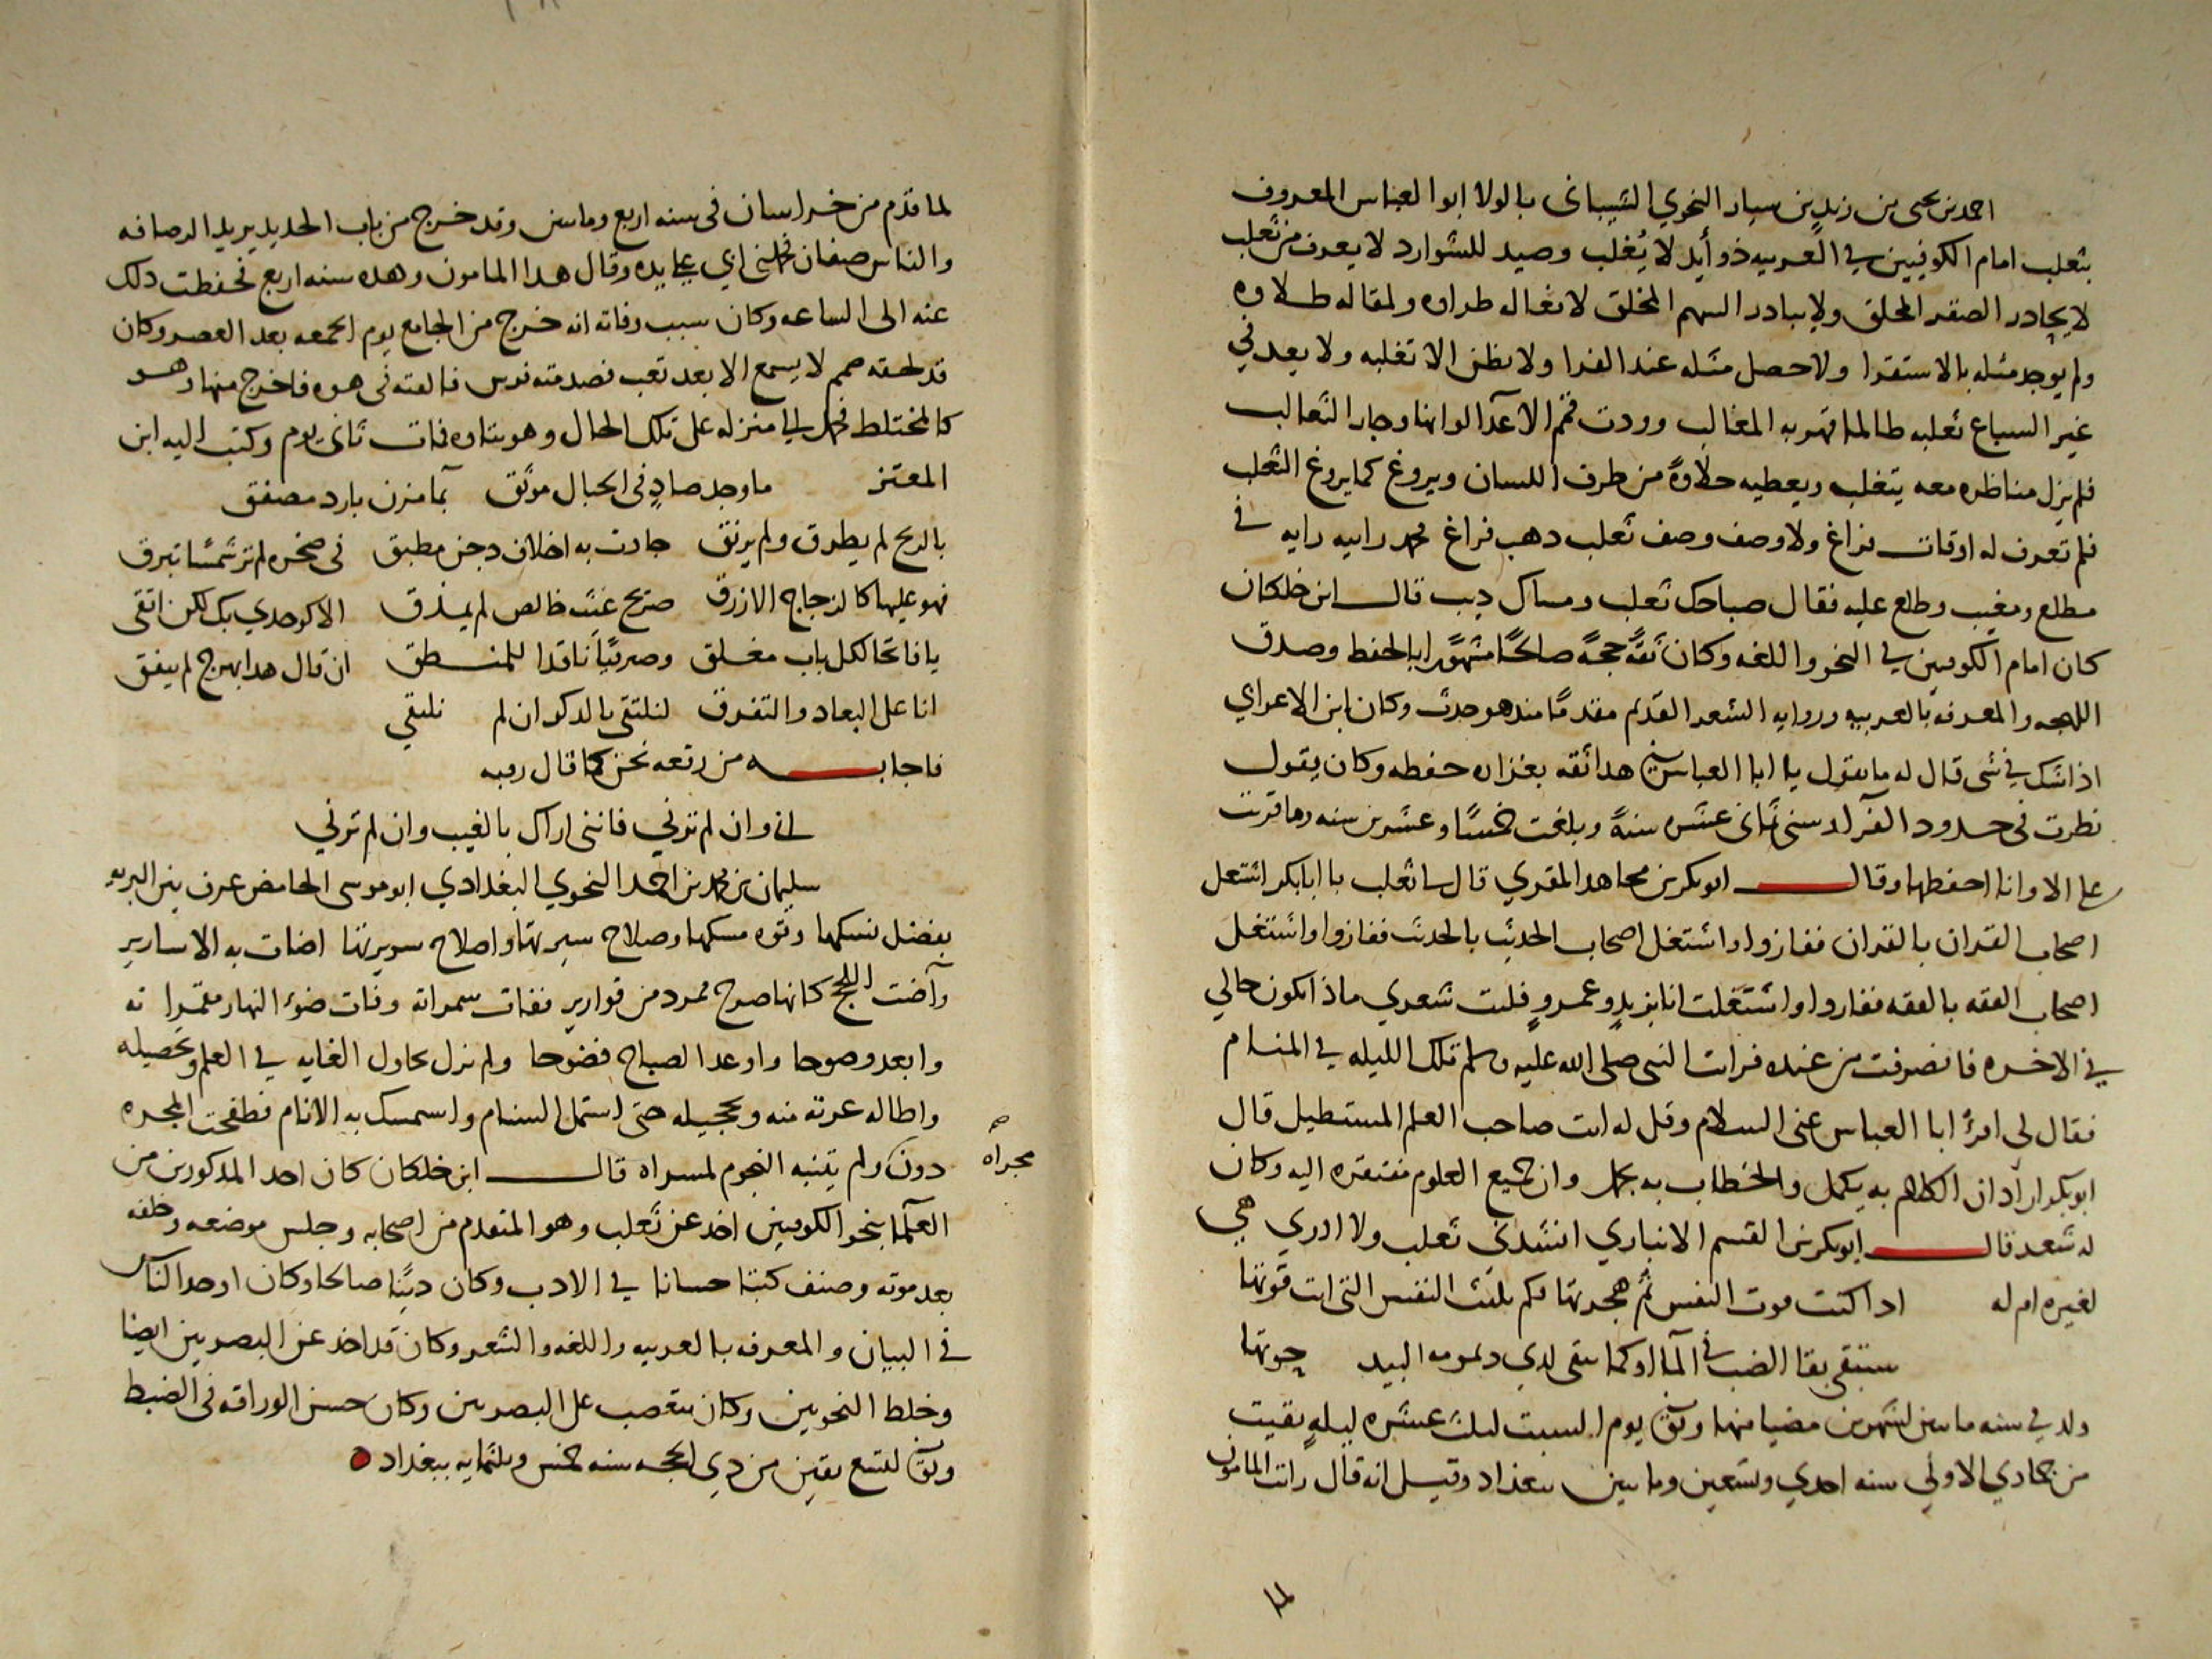 احمد بن يحيى بن زيد بن سيار النحوي الشيباني بالولا ابوا العباس المعروف
بثعلب امام الكوفيين في العربيه ذو أيد لا يُغلب وصيد للشوارد لا يعرف من ثعلب
لا يحادر الصقر المحلق ولا يبادر السهم المخلق لانغاله طراوه ولمقاله طلاوه
ولم يوجد مثله بالاستقرا ولا حصل مثله عند الفرا ولا يظن الا تغلبه ولا يعد في
غير السباع ثعلبه طالما قهر به المغالب وودت قمم الاعدآ لو انها وجار الثعالب
فلم يزل مناظره معه يتغلب ويعطيه حلاوةً من طرف اللسان ويروغ كما يروغ الثعلب
فلم تعرف له اوقات فراغ ولا وصف وصف ثعلب دهب فراغ رايه في
مطلع ومغيب وطلع عليه فقال صباحك ثعلب ومساك ديب قال ابن خلكان
كان امام الكوفيين في النحو واللغه وكان ثقةً حجةً صالحًا مشهورًا بالحفظ وصدق
اللهجه والمعرفه بالعربيه وروايه الشعر القديم مقدمًا مند هو حدث وكان ابن الاعرابي
اذا شك في شى قال له ما تقول يا ابا العباس في هدا ثقه بغزاره حفظه وكان يقول
نظرت في حدود الفرآ وسني ثماني عشره سنةً وبلغت خمسًا وعشرين سنه وما بقيت
علي الا وانا احفظها وقال ابو بكر بن مجاهد المقري قال لي ثعلب يا ابا بكر اشتغل
اصحاب القران بالقران ففازوا واشتغل اصحاب الحديث بالحديث ففازوا واشتغل
اصحاب الفقه بالفقه ففازوا واشتغلت انا بزيدٍ وعمروٍ فليت شعري ماذا يكون حالي
في الاخره فانصرفت من عنده فرايت النبي صلى الله عليه وسلم تلك الليله في المنام
فقال لي اقرأ ابا العباس عني السلام وقل له انت صاحب العلم المستطيل قال
ابو بكر اراد ان الكلام به يكمل والخطاب به يجمل وان جميع العلوم مفتقره اليه وكان
له شعر قال ابو بكر بن القسم الانباري انشدني ثعلب ولا ادري هي
لغيره ام له اذا كنت قوت النفس ثم هجرتها فكم تلبث النفس التي انت قوتها
ستبقى بقا الضب في المآ او كما يبقى لدي ديمومه البيد حوتها
ولد في سنه مايتين لشهرين مضيا منها وتوفي يوم السبت لثلث عشره ليلةٍ بقيت
من جمادي الاولي سنه احدي وتسعين ومايتين ببغداد وقيل انه قال رايت المامون
لما قدم من خراسان في سنه اربع ومايتين وقد خرج من باب الحديد يريد الرصافه
والناس صفان فحملني ابي علي يده وقال هدا المامون وهده سنه اربع فحفظت دلك
عنه الى الساعه وكان سبب وفاته انه خرج من الجامع يوم الجمعه بعد العصر وكان
قد لحقه صمم لا يسمع الا بعد تعب فصدمته فرس فالقته في هوه فاخرج منها وهو
كالمختلط فحمل الي منزله على تلك الحال وهو يتاوه فمات ثاني يوم وكتب اليه ابن
المعتز ما وجد صادٍ في الحبال موثق بمآ مزن بارد مصفق
بالريح لم يطرق ولم يرنق جادت به اخلاف دجن مطبق في صخره لم تر شمسًا تبرق
فهو عليها كالزجاج الازرق صريح غيث خالص لم يمذق الا كوجدي بك لكن اتقي
يا فاتحا لكل باب مغلق وصيرفيًا ناقدا للمنطق ان قال هدا بهرج لم ينفق
انا على البعاد والتفرق لنلتقي بالدكر ان لم نلتقي
فاجابه من رقعه نحن كما قال روبه
اني وان لم ترني فانني اراك بالغيب وان لم ترني
سليمان بن محمد بن احمد النحوي البغدادي ابو موسى الحامض عرف بين البريه
بفضل نسكها وقوه مسكها وصلاح سيرتها واصلاح سريرتها اضات به الاسارير
وآضت اللجج كانها صرح ممرد من قوارير ففات سمراته وفات ضوء النهار مقمرا ته
وابعد وضوحا واوعد الصباح فضوحا ولم يزل يحاول الغايه في العلم وتحصيله
واطاله غرته منه وتحجيله حتى استمل السنام واستمسك به الانام فطفحت المجره
دون ولم يتنبه النجوم لمسراه قال ابن خلكان كان احد المدكورين من
مجراه صح
العلمآ بنحو الكوفيين اخد عن ثعلب وهو المتقدم من اصحابه وجلس موضعه وخلفه
بعد موته وصنف كتبًا حسانا في الادب وكان دينًا صالحا وكان اوحد الناس
في البيان والمعرفه بالعربيه واللغه والشعر وكان قد اخد عن البصريين ايضا
وخلط النحويين وكان يتعصب على البصريين وكان حسن الوراقه في الضبط
وتوفي لسبع بقين من دي الحجه سنه خمس وثلثمايه ببغداد